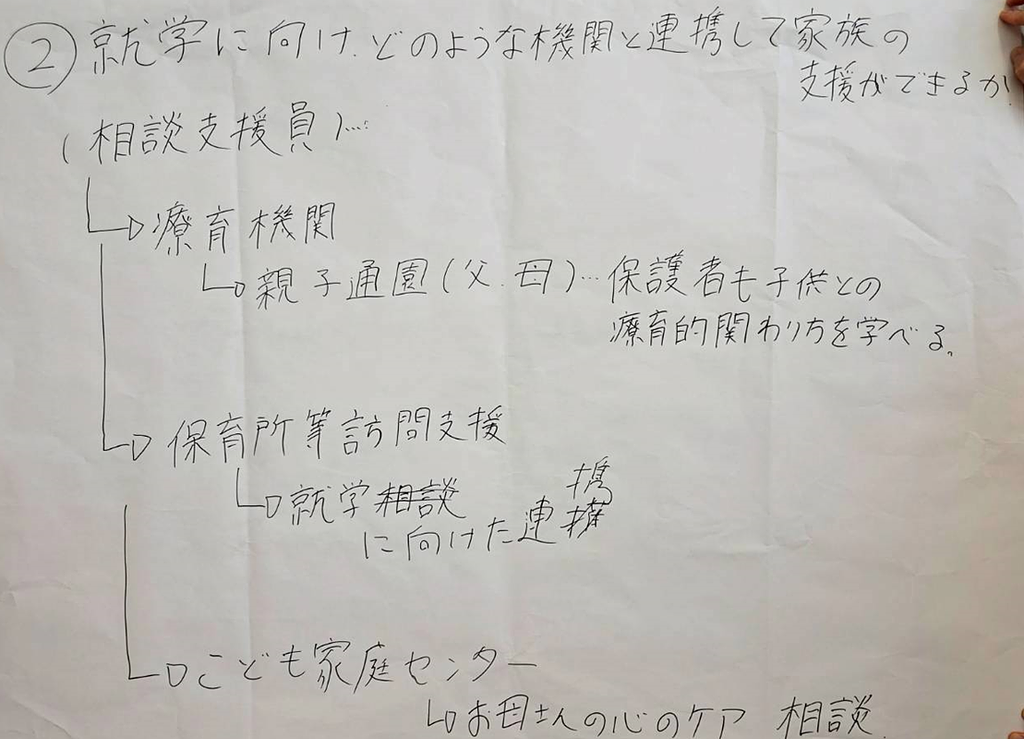 ② 就学に向け、どのような機関と連携して家族の
支援ができるか
(相談支援員)…
療育機関
親子通園(父、母)…保護者も子供との
療育的関わり方を学べる。
保育所等訪問支援
就学相談
に向けた連携
こども家庭センター
お母さんの心のケア 相談